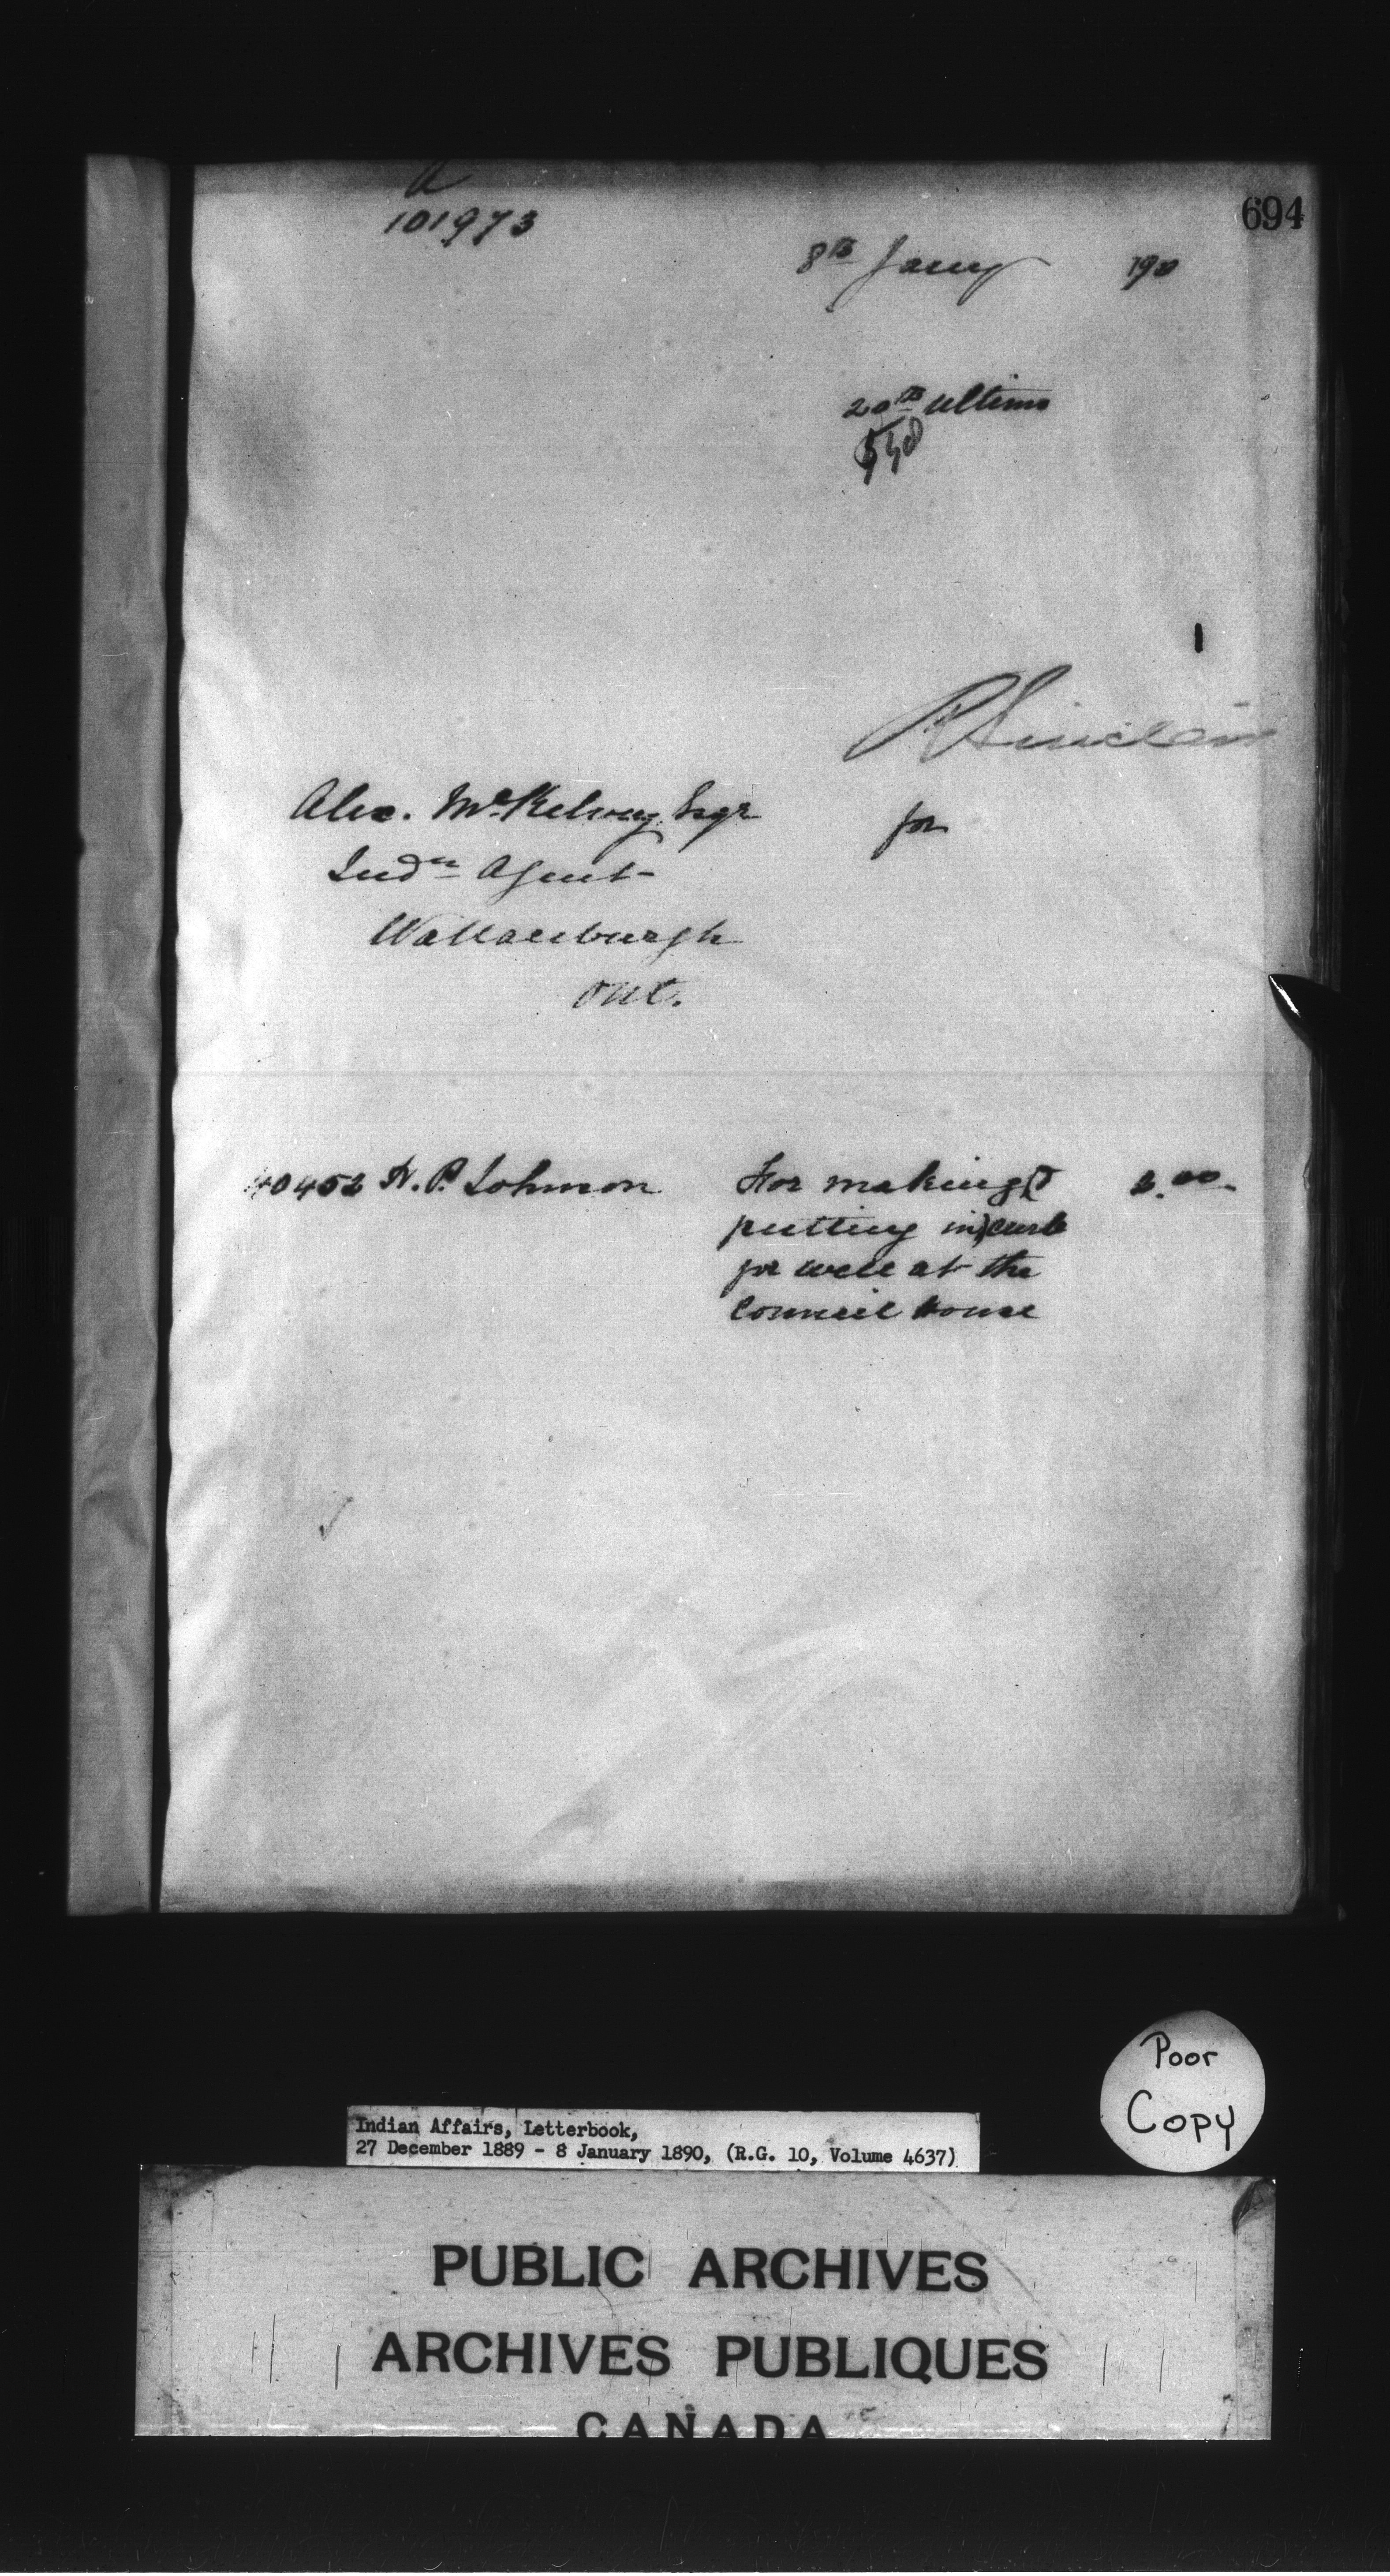 694
A
101973
8th Jany 190
20th ultimo
1
R Sinclair
Alex. McKelvey Esqr for
Indn Agent
Wallaceburgh
Ont.
40452 W. P. Johnson For making (&
putting in) curb
for well at the
Council House
Poor
Copy
Indian Affairs, Letterbook,
27 December 1889 - 8 January 1890, (R.G. 10, Volume 4637)
PUBLIC ARCHIVES
ARCHIVES PUBLIQUES
CANADA